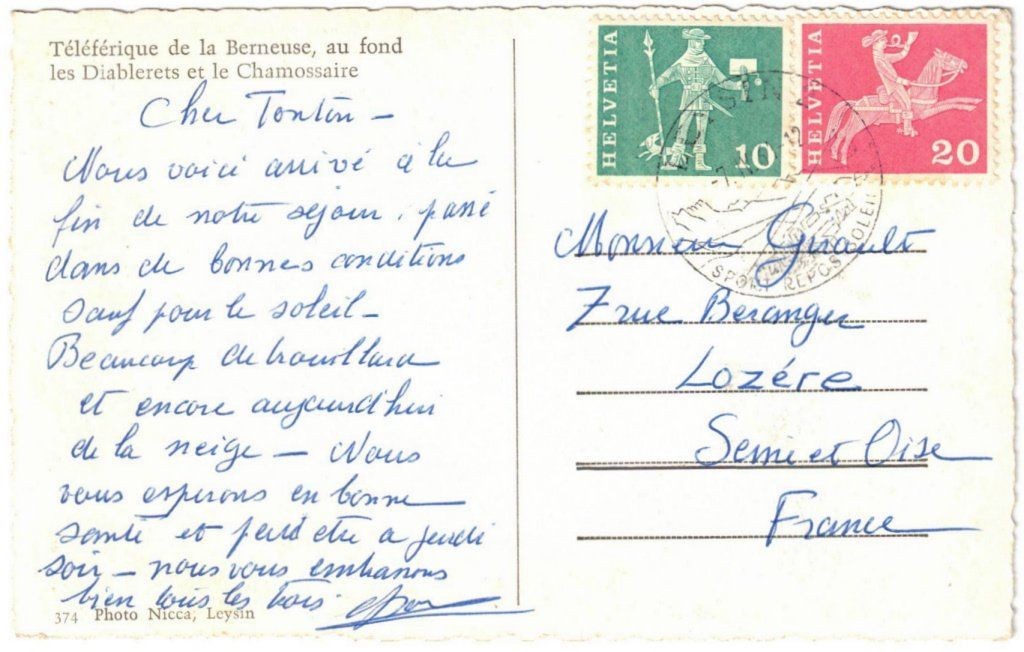 Téléférique de la Berneuse, au fond
les Diablerets et le Chamossaire
Cher Tonton -
Nous voici arrivé à la
fin de notre séjour, passé
dans de bonnes conditions
sauf pour le soleil -
Beaucoup de brouillard
et encore aujourd'hui
de la neige - Nous
vous esperons en bonne
santé et peut etre a jeudi
soir - nous vous embrassons
bien tous les trois.
374 Photo Nicca, Leysin
HELVETIA
10
HELVETIA
20
SPORT REPOS SOLEIL
Monsieur Girault
7 rue Beranger
Lozére
Seine et Oise
France